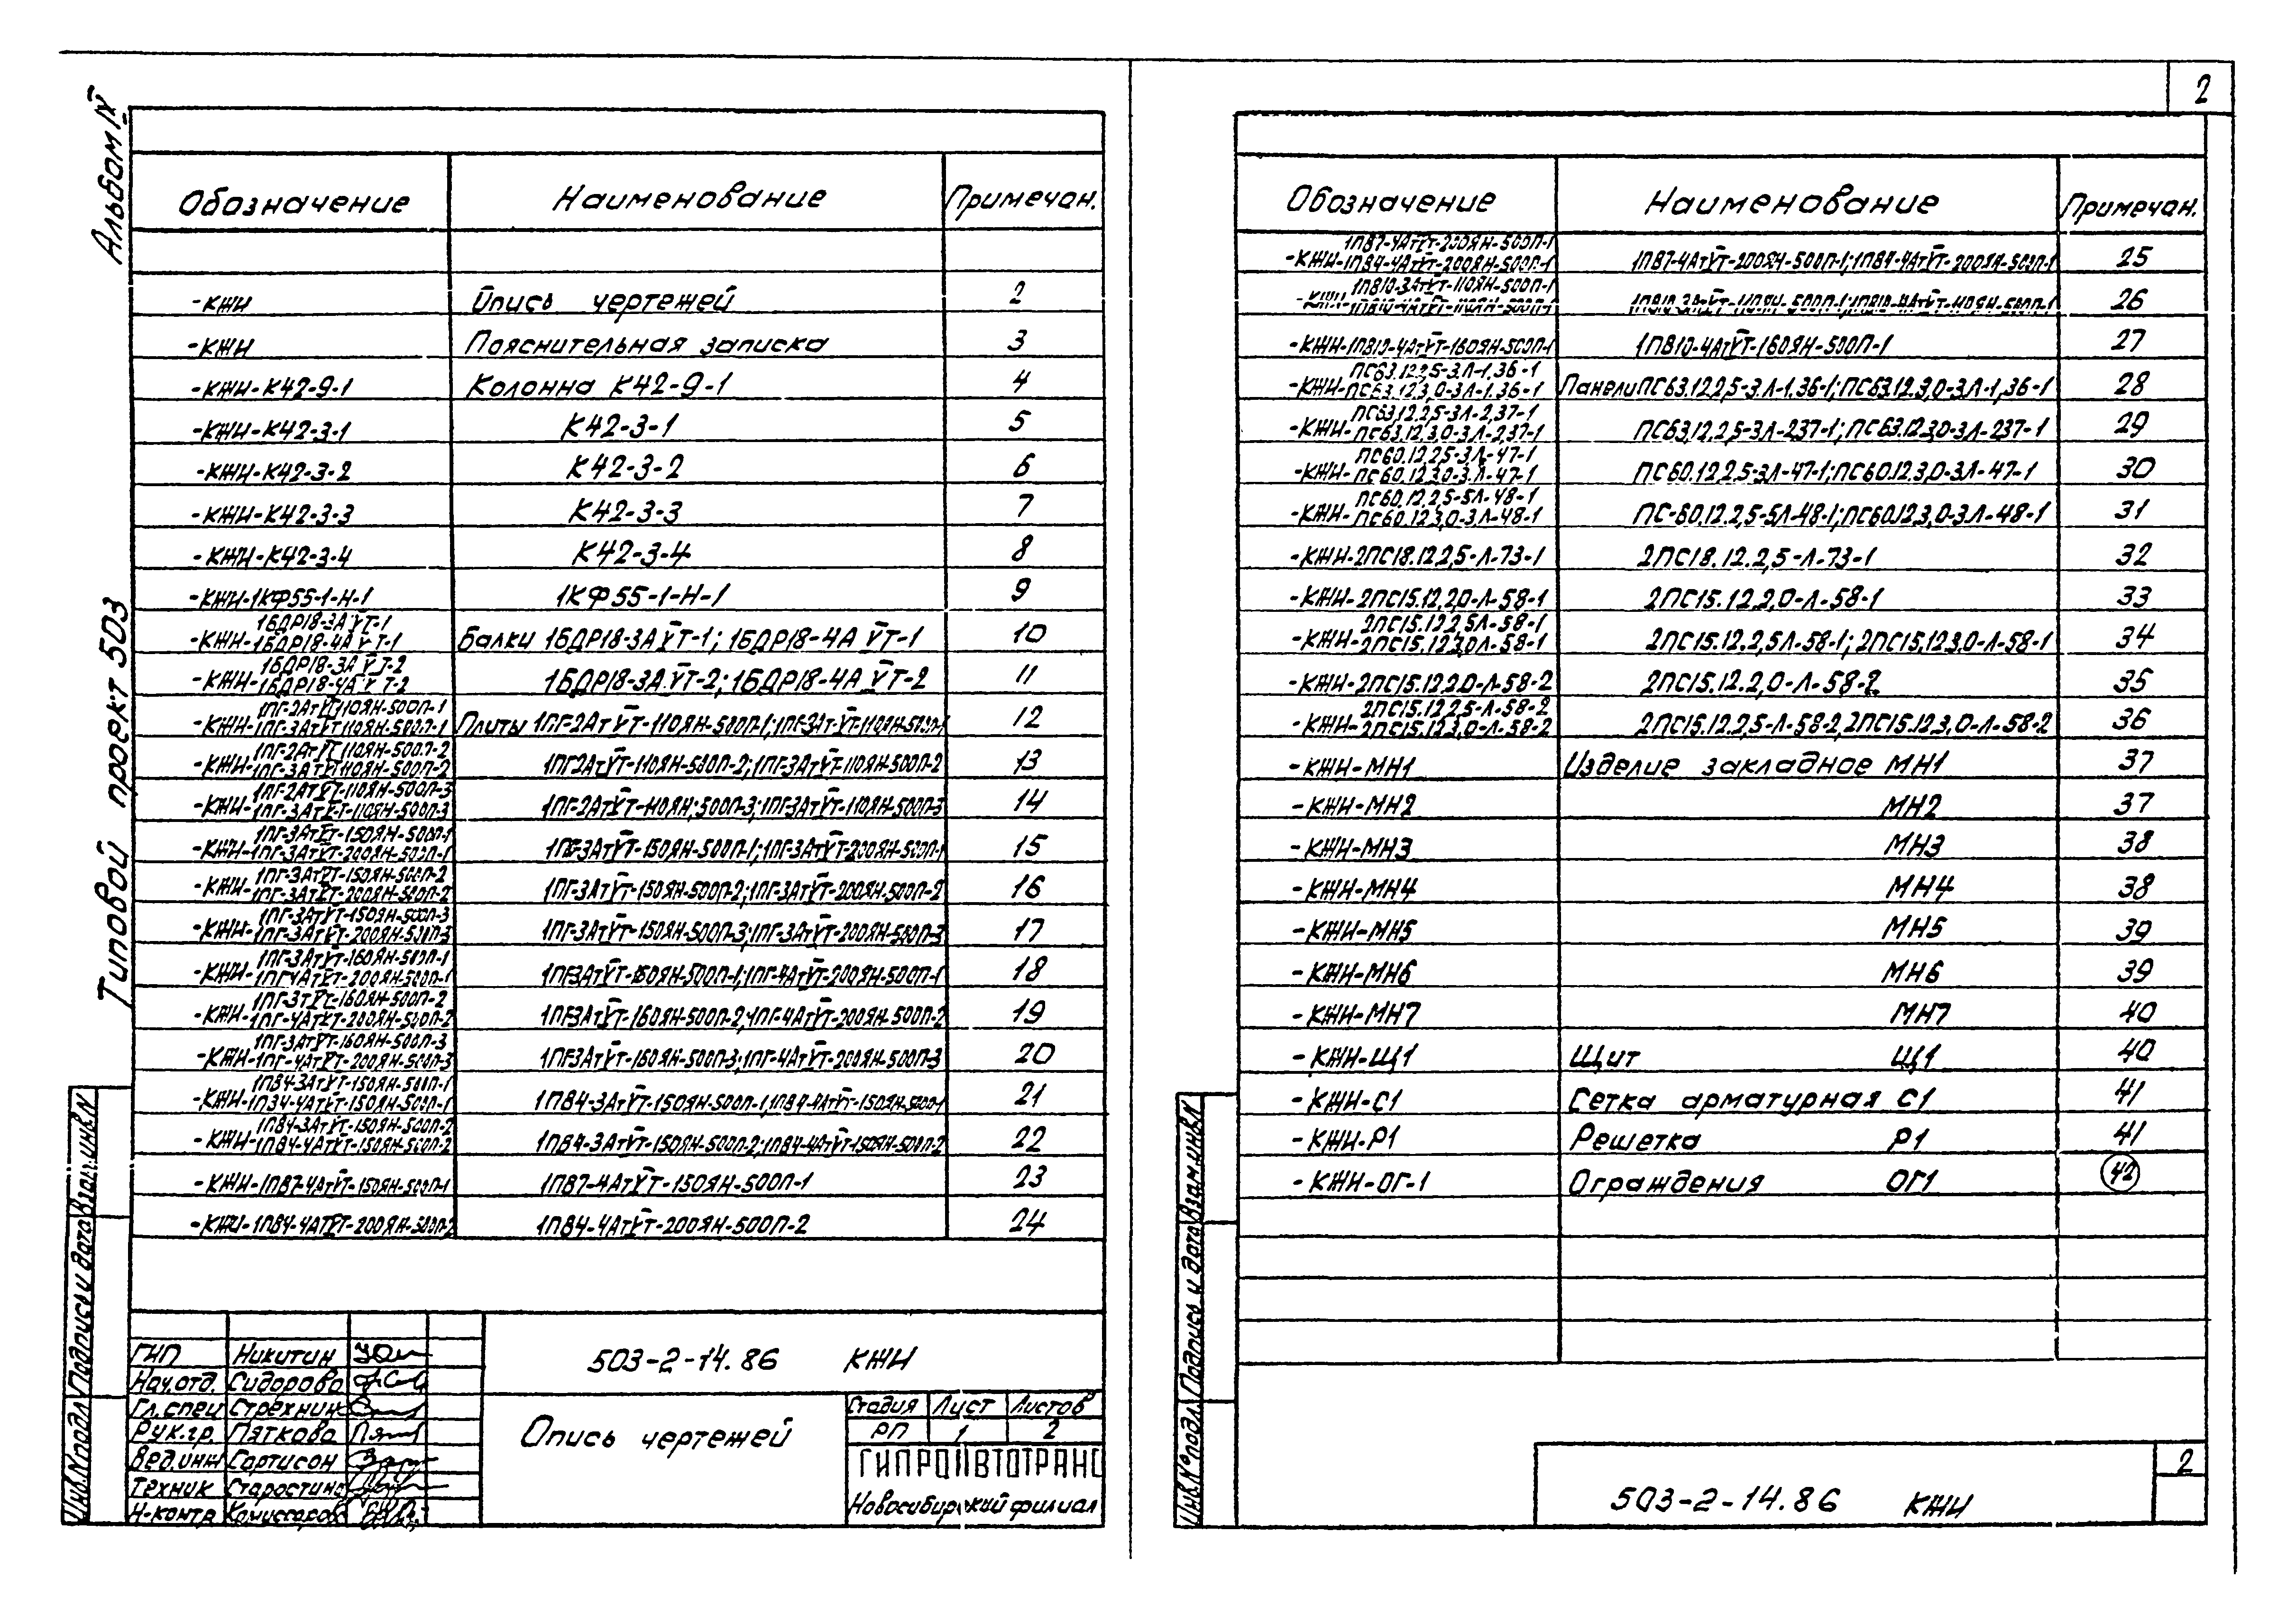 2
Альбом IV
Типовой проект 503
Обозначение Наименование Примечан.
-КЖИ Опись чертежей 2
-КЖИ Пояснительная записка 3
-КЖИ-К42-9-1 Колонна К42-9-1 4
-КЖИ-К42-3-1 К42-3-1 5
-КЖИ-К42-3-2 К42-3-2 6
-КЖИ-К42-3-3 К42-3-3 7
-КЖИ-К42-3-4 К42-3-4 8
-КЖИ-1КФ55-1-Н-1 1КФ55-1-Н-1 9
1БДР18-3АVТ-1
-КЖИ-1БДР18-4АVТ-1 Балки 1БДР18-3АVТ-1; 1БДР18-4АVТ-1 10
1БДР18-3АVТ-2
-КЖИ-1БДР18-4АVТ-2 1БДР18-3АVТ-2; 1БДР18-4АVТ-2 11
1ПГ-2АтVТ110ЯН-500П-1
-КЖИ-1ПГ-3АтVТ110ЯН-500П-1 Плиты 1ПГ-2АтVТ-110ЯН-500П-1; 1ПГ-3АтVТ-110ЯН-500П-1 12
1ПГ-2АтVТ110ЯН-500П-2
-КЖИ-1ПГ-3АтVТ110ЯН-500П-2 1ПГ2АтVТ-110ЯН-500П-2; 1ПГ-3АтVТ-110ЯН-500П-2 13
1ПГ-2АтVТ-110ЯН-500П-3
-КЖИ-1ПГ-3АтVТ-110ЯН-500П-3 1ПГ-2АтVТ-110ЯН;500П-3; 1ПГ-3АтVТ-110ЯН-500П-3 14
1ПГ-3АтVТ-150ЯН-500П-1
-КЖИ-1ПГ-3АтVТ-200ЯН-500П-1 1ПГ-3АтVТ-150ЯН-500П-1; 1ПГ-3АтVТ-200ЯН-500П-1 15
1ПГ-3АтVТ-150ЯН-500П-2
-КЖИ-1ПГ-3АтVТ-200ЯН-500П-2 1ПГ-3АтVТ-150ЯН-500П-2; 1ПГ-3АтVТ-200ЯН-500П-2 16
1ПГ-3АтVТ-150ЯН-500П-3
-КЖИ-1ПГ-3АтVТ-200ЯН-500П-3 1ПГ-3АтVТ-150ЯН-500П-3; 1ПГ-3АтVТ-200ЯН-500П-3 17
1ПГ-3АтVТ-160ЯН-500П-1
-КЖИ-1ПГ4АтVТ-200ЯН-500П-1 1ПГ3АтVТ-160ЯН-500П-1; 1ПГ-4АтVТ-200ЯН-500П-1 18
1ПГ-3тVТ-160ЯН-500П-2
-КЖИ-1ПГ-4АтVТ-200ЯН-500П-2 1ПГ3АтVТ-160ЯН-500П-2; 1ПГ-4АтVТ-200ЯН-500П-2 19
1ПГ-3АтVТ-160ЯН-500П-3
-КЖИ-1ПГ-4АтVТ-200ЯН-500П-3 1ПГ3АтVТ-160ЯН-500П-3; 1ПГ-4АтVТ-200ЯН-500П-3 20
1ПВ4-3АтVТ-150ЯН-500П-1
-КЖИ-1ПВ4-4АтVТ-150ЯН-500П-1 1ПВ4-3АтVТ-150ЯН-500П-1; 1ПВ4-4АтVТ-150ЯН-500П-1 21
1ПВ4-3АтVТ-150ЯН-500П-2
-КЖИ-1ПВ4-4АтVТ-150ЯН-500П-2 1ПВ4-3АтVТ-150ЯН-500П-2; 1ПВ4-4АтVТ-150ЯН-500П-2 22
-КЖИ-1ПВ7-4АтVТ-150ЯН-500П-1 1ПВ7-4АтVТ-150ЯН-500П-1 23
-КЖИ-1ПВ4-4АТVТ-200ЯН-500П-2 1ПВ4-4АтVТ-200ЯН-500П-2 24
ГИП Никитин
Нач.отд. Сидорова
Гл.спец Стрехнин
Рук.гр. Пяткова
Вед.инж Сартисон
Техник Старостина
Н-контр Комиссаров
503-2-14.86 КЖИ
Опись чертежей
Стадия Лист Листов
РП 1 2
ГИПРОАВТОТРАНС
Новосибирский филиал
Инв.N подл Подпись и дата Взам.инв.N
Обозначение Наименование Примечан.
1ПВ7-4АтVТ-200ЯН-500П-1
-КЖИ-1ПВ4-4АтVТ-200ЯН-500П-1 1ПВ7-4АтVТ-200ЯН-500П-1; 1ПВ4-4АтVТ-200ЯН-500П-1 25
1ПВ10-3АтVТ-110ЯН-500П-1
-КЖИ-1ПВ10-4АтVТ-110ЯН-500П-1 1ПВ10-3АтVТ-110ЯН-500П-1; 1ПВ10-4АтVТ-110ЯН-500П-1 26
-КЖИ-1ПВ10-4АтVТ-160ЯН-500П-1 1ПВ10-4АтVТ-160ЯН-500П-1 27
ПС63.12.2,5-3Л-1,36-1
-КЖИ-ПС63.12.3,0-3Л-1,36-1 Панели ПС63.12.2,5-3Л-1.36-1; ПС63.12.3,0-3Л-1,36-1 28
ПС63.12.2,5-3Л-2,37-1
-КЖИ-ПС63.12.3,0-3Л-2,37-1 ПС63.12.2,5-3Л-237-1; ПС63.12.3,0-3Л-237-1 29
ПС60.12.2,5-3Л-47-1
-КЖИ-ПС60.12.3,0-3Л-47-1 ПС60.12.2,5-3Л-47-1; ПС60.12.3,0-3Л-47-1 30
ПС60.12.2,5-5Л-48-1
-КЖИ-ПС60.12.3,0-3Л-48-1 ПС-60.12.2,5-5Л-48-1; ПС60.12.3,0-3Л-48-1 31
-КЖИ-2ПС18.12.2,5-Л-73-1 2ПС18.12.2,5-Л-73-1 32
-КЖИ-2ПС15.12.2,0-Л-58-1 2ПС15.12.2,0-Л-58-1 33
2ПС15.12.2,5Л-58-1
-КЖИ-2ПС15.12.3,0Л-58-1 2ПС15.12.2,5Л-58-1; 2ПС15.12.3,0-Л-58-1 34
-КЖИ-2ПС15.12.2,0-Л-58-2 2ПС15.12.2,0-Л-58-2 35
2ПС15.12.2,5-Л-58-2
-КЖИ-2ПС15.12.3,0-Л-58-2 2ПС15.12.2,5-Л-58-2, 2ПС15.12.3,0-Л-58-2 36
-КЖИ-МН1 Изделие закладное МН1 37
-КЖИ-МН2 МН2 37
-КЖИ-МН3 МН3 38
-КЖИ-МН4 МН4 38
-КЖИ-МН5 МН5 39
-КЖИ-МН6 МН6 39
-КЖИ-МН7 МН7 40
-КЖИ-Щ1 Щит Щ1 40
-КЖИ-С1 Сетка арматурная С1 41
-КЖИ-Р1 Решетка Р1 41
-КЖИ-ОГ-1 Ограждения ОГ1 42
503-2-14.86 КЖИ
2
Инв.N° подл. Подпись и дата Взам.инв.N